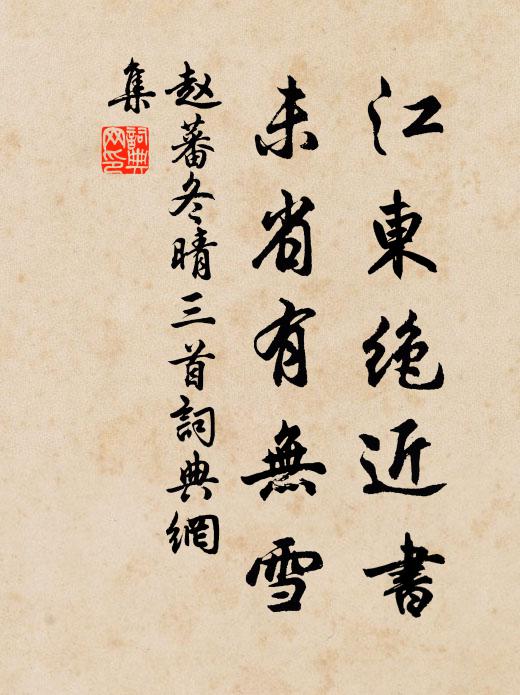 江東絶近書
未省有無雪
赵蕃冬晴三首詞典網
集
詞典网印